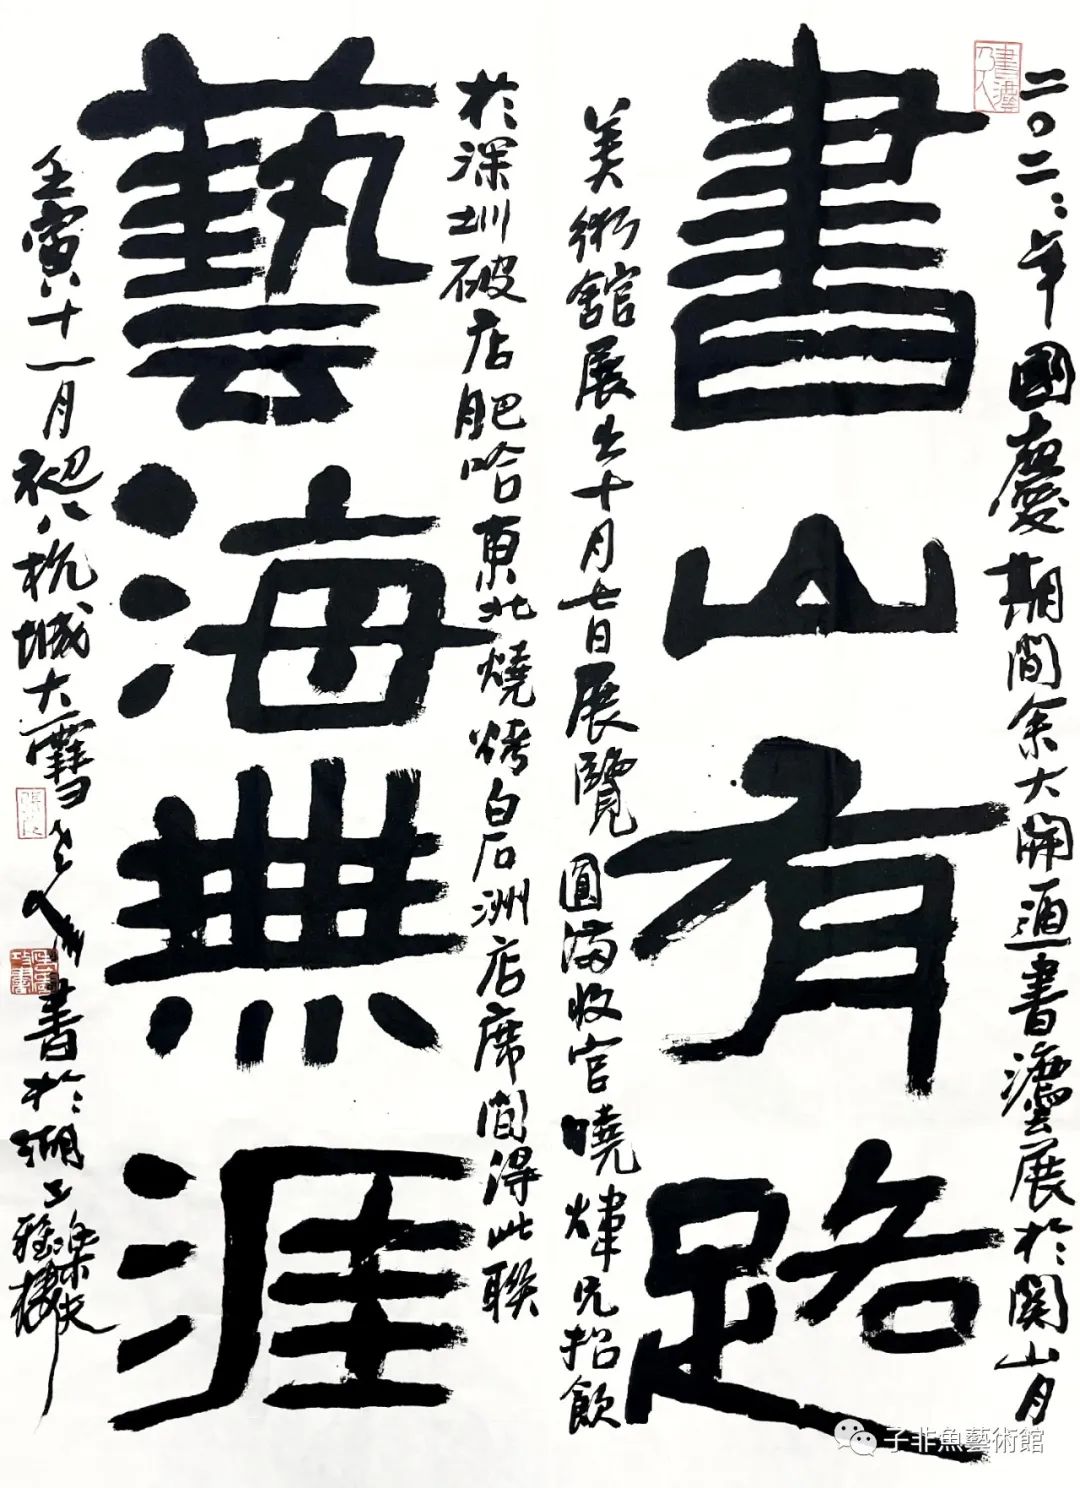 二〇二二年國慶期間余大開通書灋展於關山月
書山有路
美術館展出十月七日展覽圓滿收官曉煒兄招飲
於深圳破店肥哈東北燒烤白石洲店席間得此聯
藝海無涯
壬寅十一月初八杭城大雪
書於湖上
子非魚藝術館